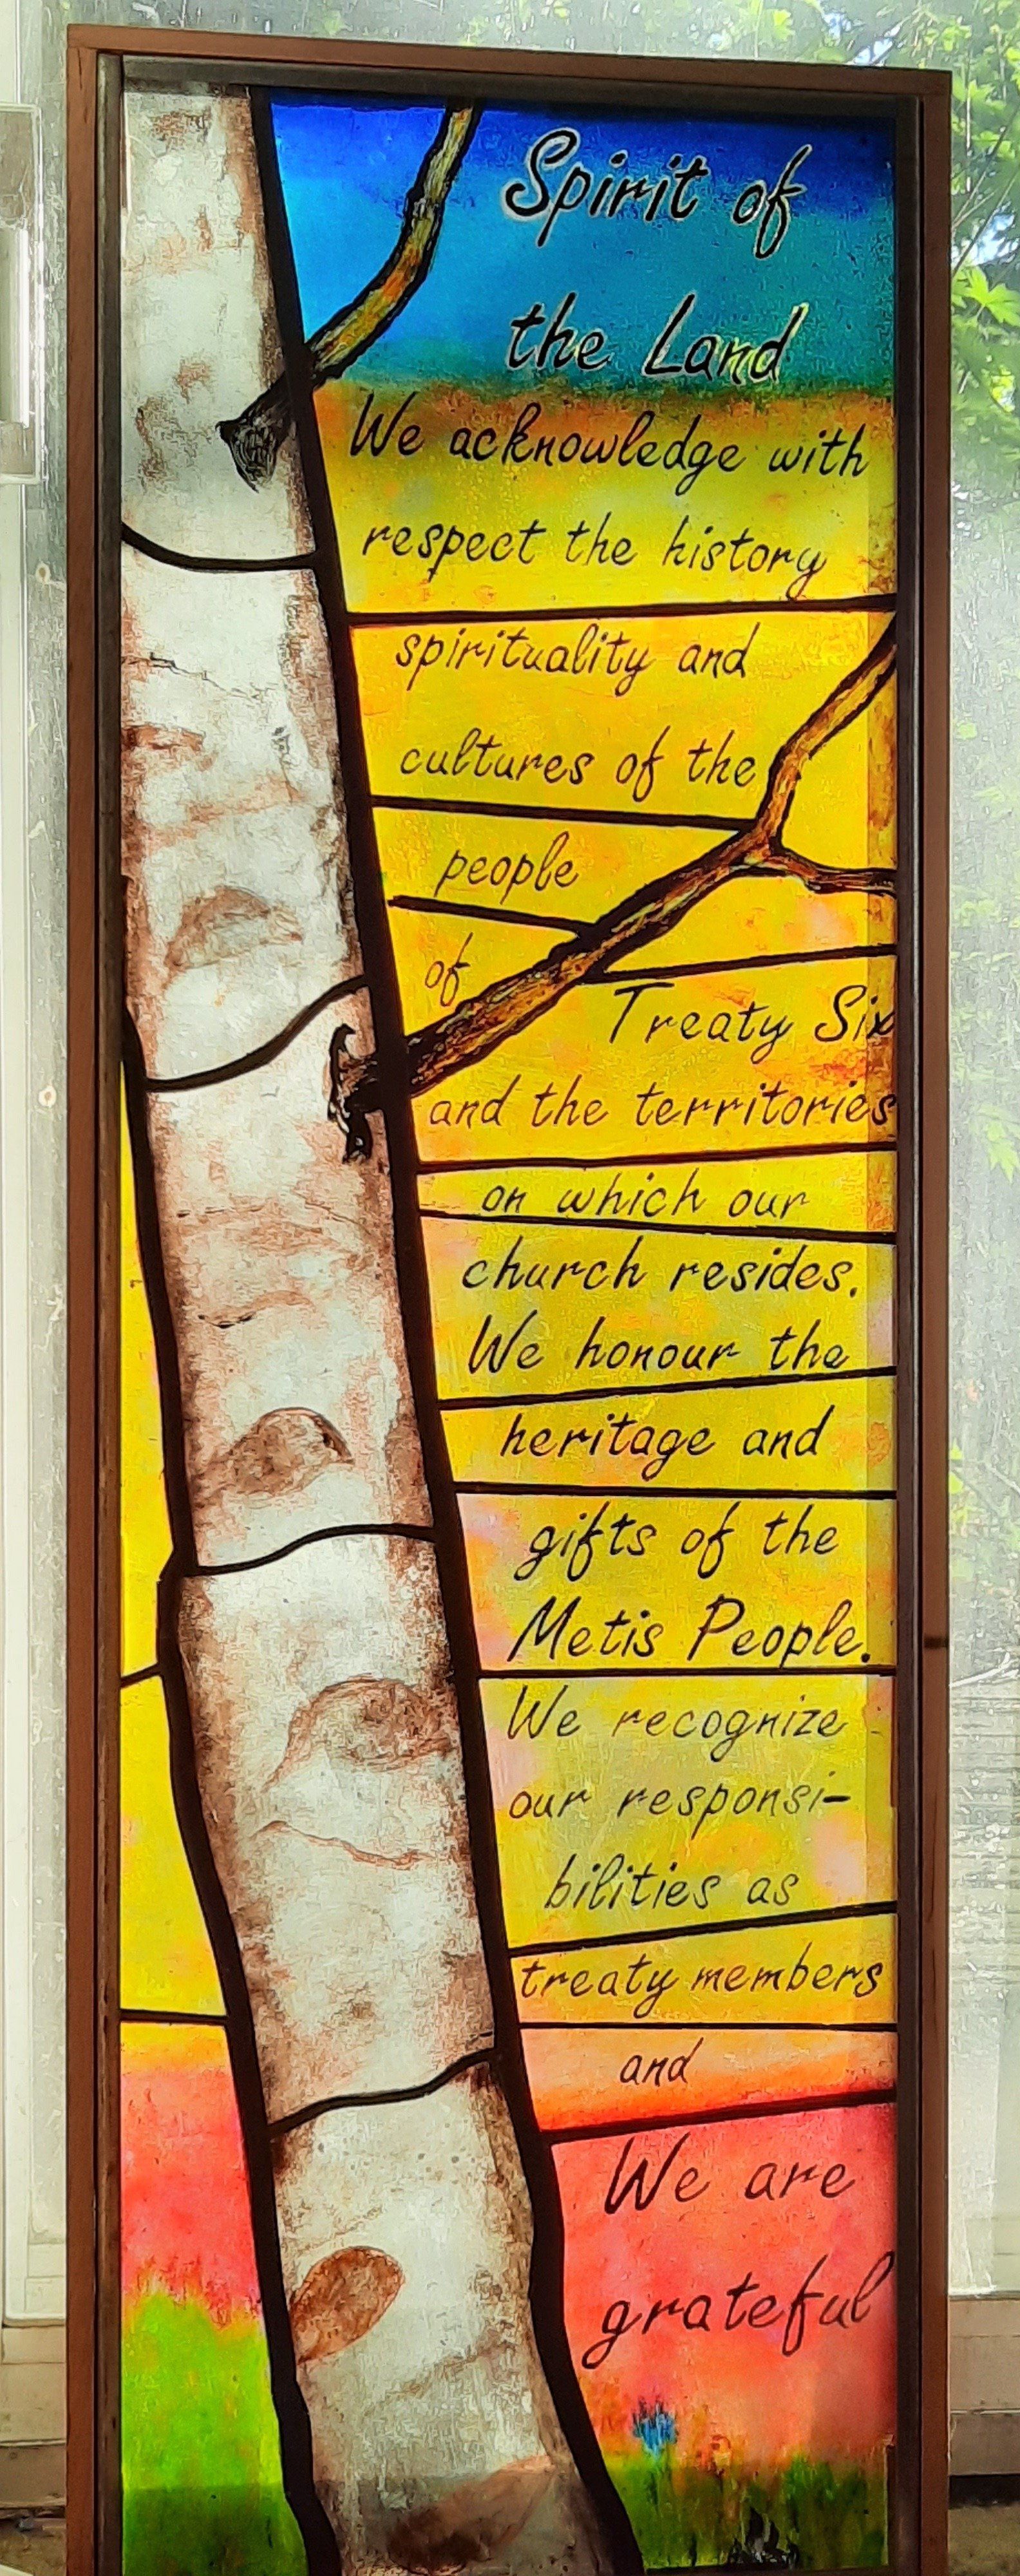 Spirit of
the Land
We acknowledge with
respect the history
spirituality and
cultures of the
people
of
Treaty Six
and the territories
on which our
church resides.
We honour the
heritage and
gifts of the
Metis People.
We recognize
our responsi-
bilities as
treaty members
and
We are
grateful